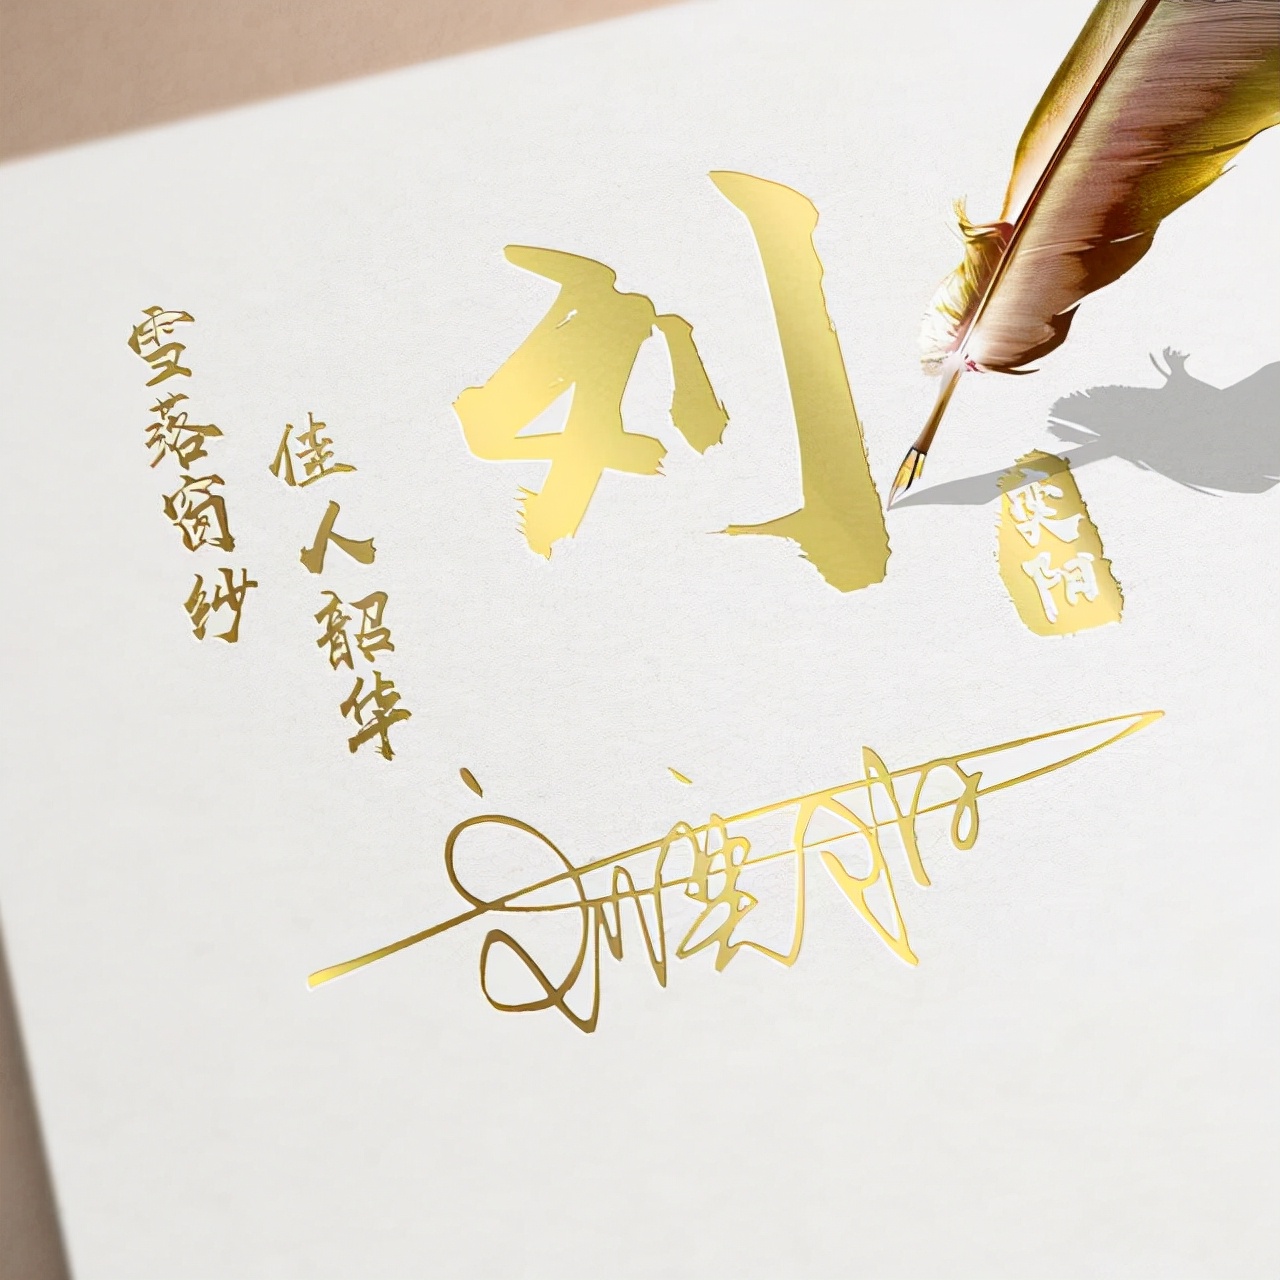 刘
奕阳
雪落窗纱
佳人韶华